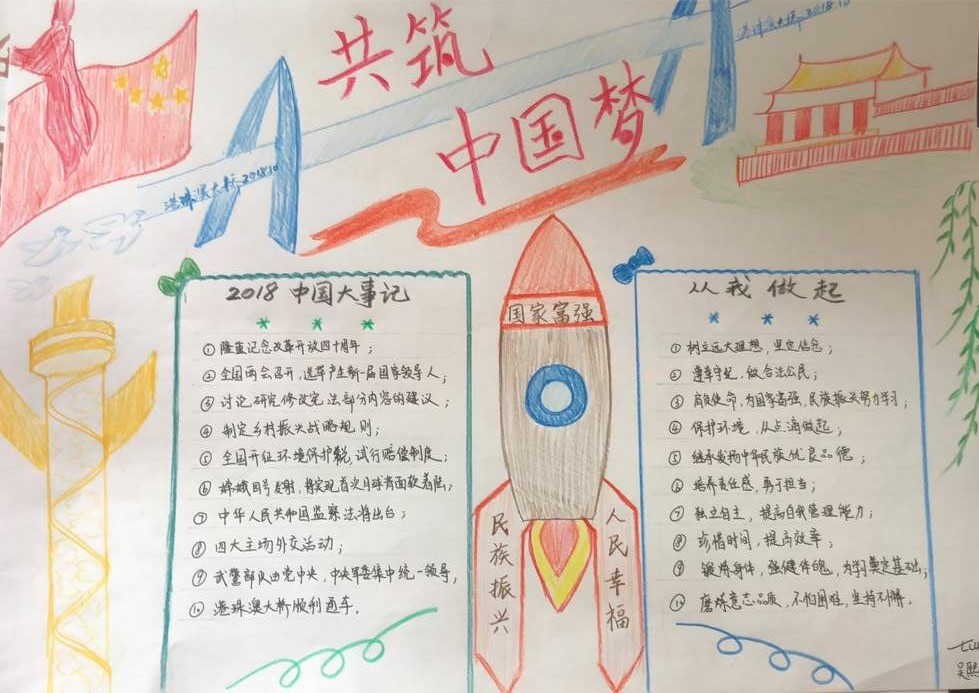 共筑
中国梦
港珠澳大桥2018.10
港珠澳大桥2018.10
2018中国大事记
①隆重记念改革开放四十周年；
②全国两会召开，选举产生新一届国家领导人；
③讨论研究修改宪法部分内容的建议；
④制定乡村振兴战略规则；
⑤全国开征环境保护税，试行赔偿制度；
⑥嫦娥四号发射，将实现首次月球背面软着陆；
⑦中华人民共和国监察法将出台；
⑧四大主场外交活动；
⑨武警部队由党中央，中央军委集中统一领导，
⑩港珠澳大桥顺利通车。
国家富强
民族振兴
人民幸福
从我做起
①树立远大理想，坚定信念；
②遵章守纪，做合法公民；
③肩负使命，为国家富强，民族振兴努力学习；
④保护环境，从点滴做起；
⑤继承发扬中华民族优良品德；
⑥培养责任感，勇于担当；
⑦独立自主，提高自我管理能力；
⑧珍惜时间，提高效率；
⑨锻炼身体，强健体魄，为学习奠定基础；
⑩磨炼意志品质，不怕困难，坚持不懈。